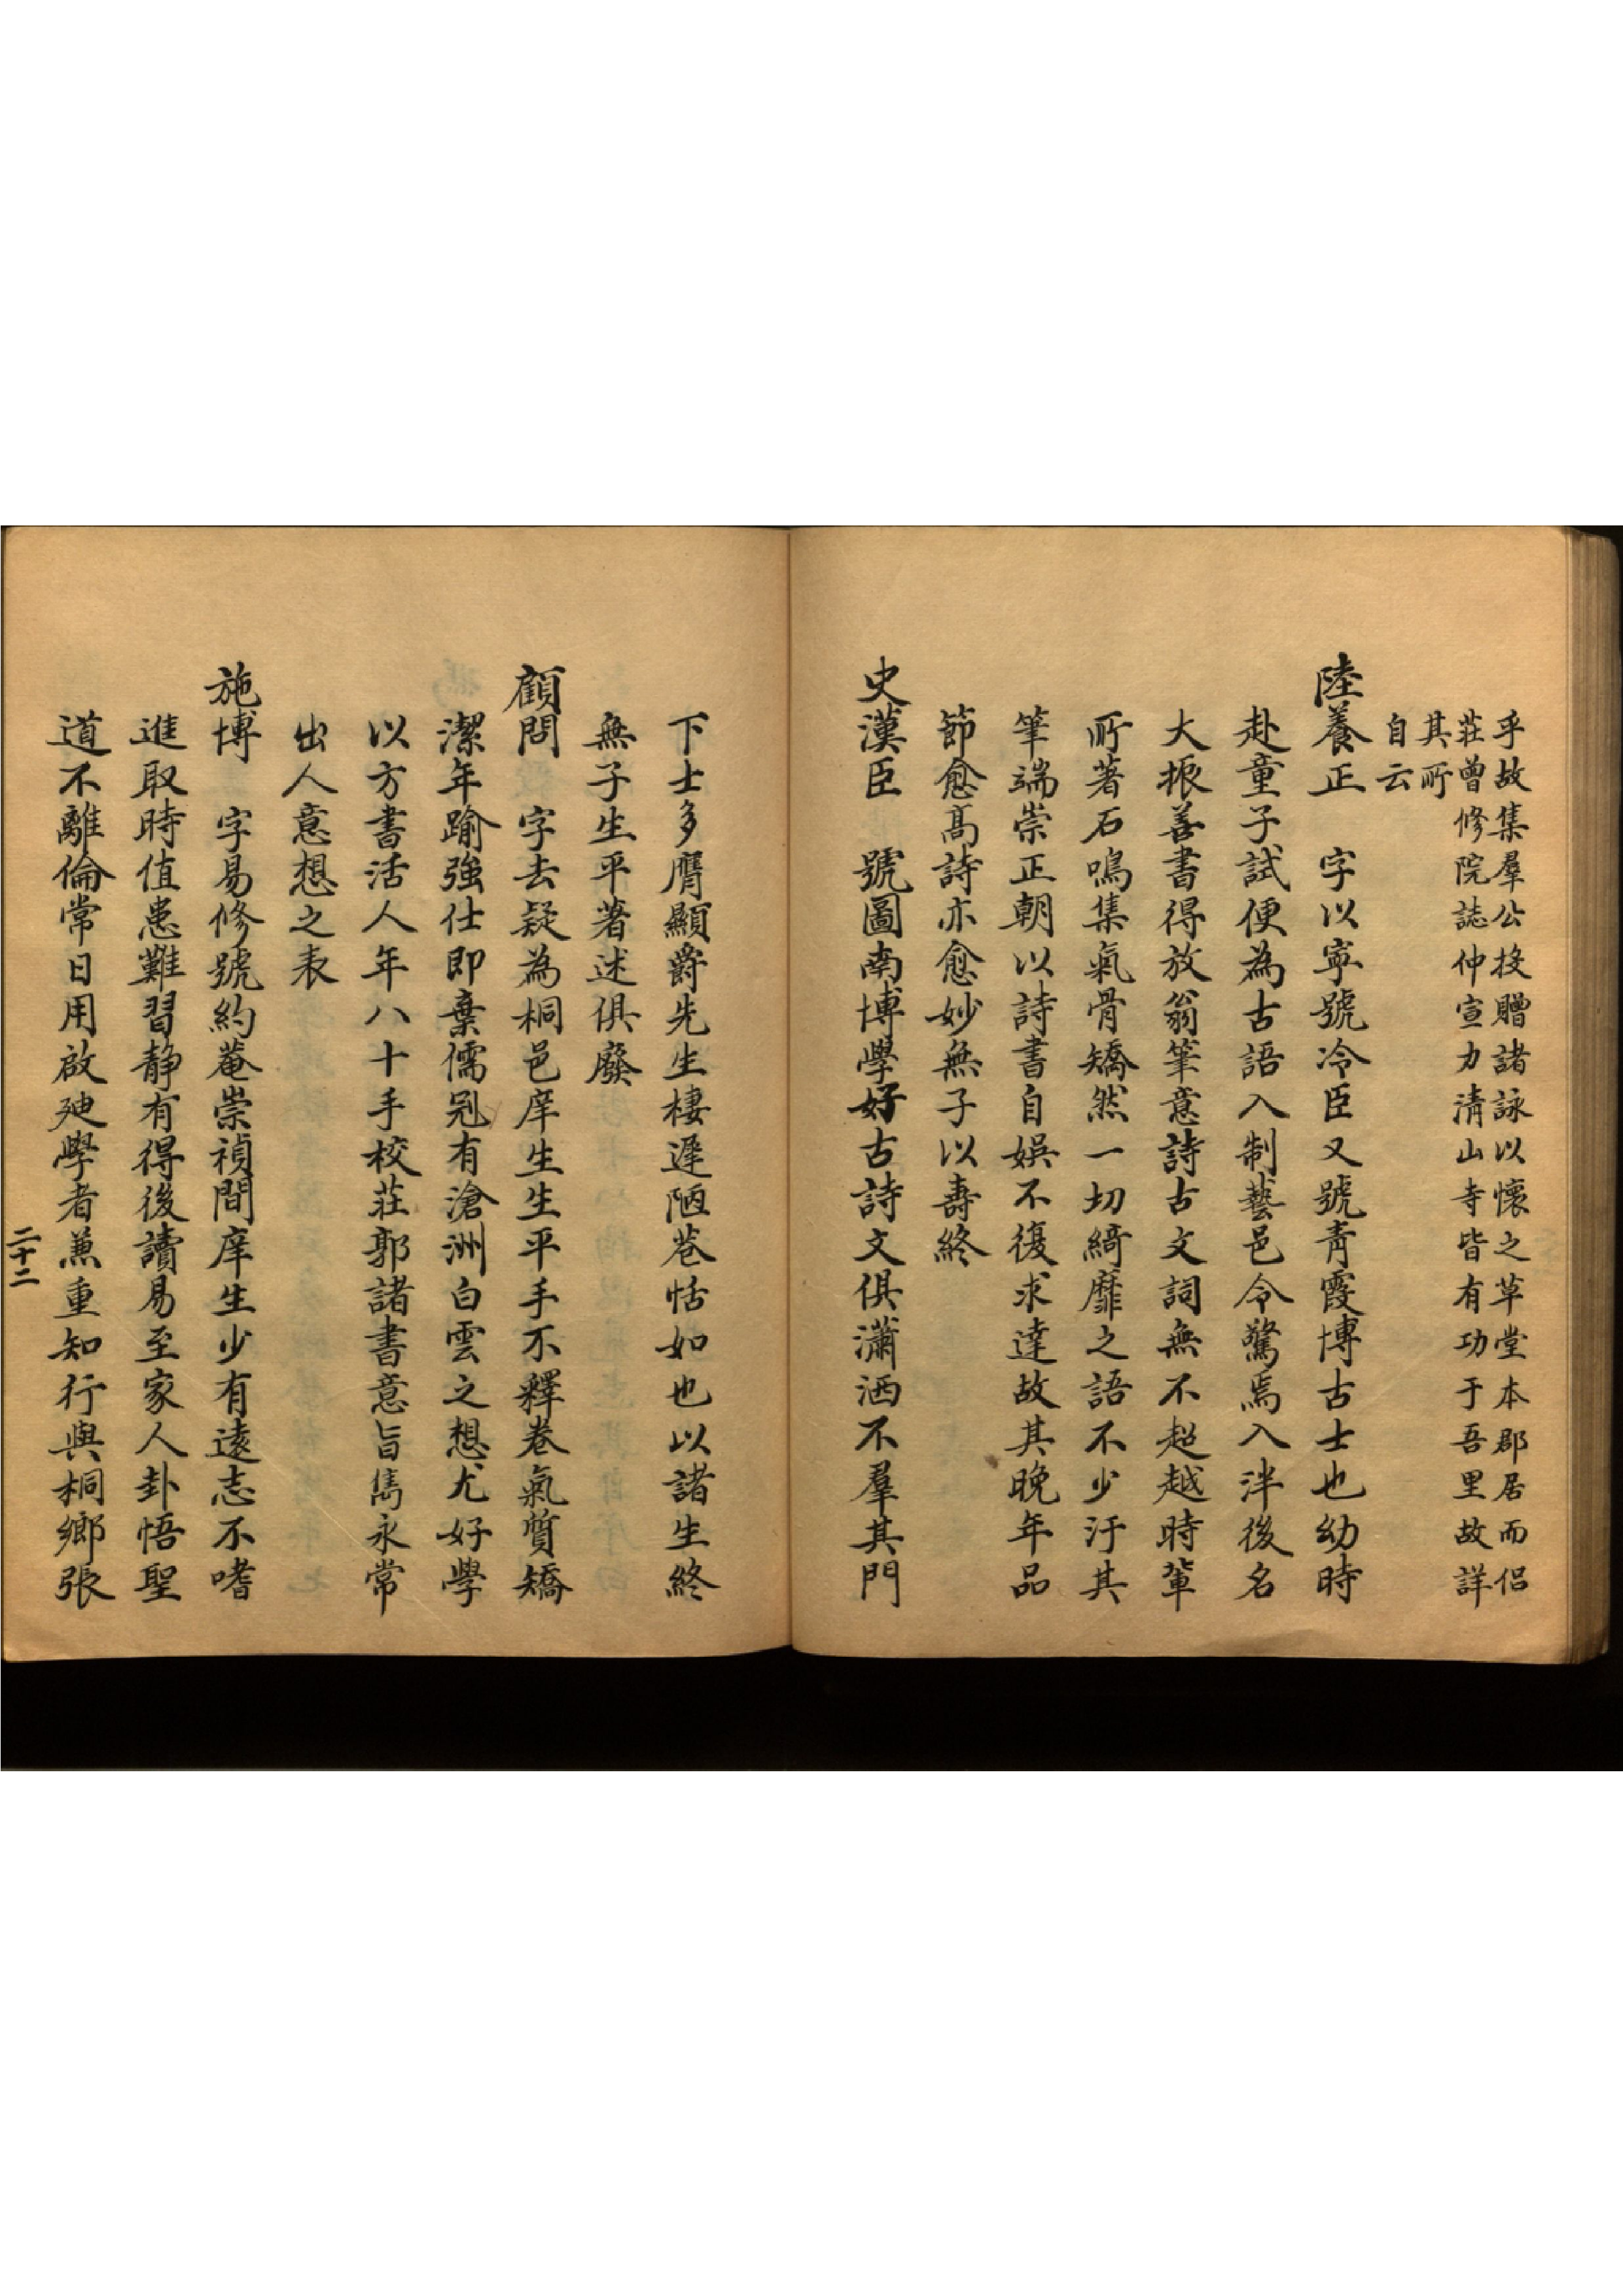 乎故集羣公投贈諸詠以懷之草堂本郡居而侶
莊曾修院誌仲宣力清山寺皆有功于吾里故詳
其所
自云
陸養正　字以寧號冷臣又號青霞博古士也幼時
赴童子試便為古語入制藝邑令驚焉入泮後名
大振善書得放翁筆意詩古文詞無不超越時輩
所著石鳴集氣骨矯然一切綺靡之語不少汙其
筆端崇正朝以詩書自娛不復求達故其晚年品
節愈高詩亦愈妙無子以壽終
史漢臣　號圖南博學好古詩文俱瀟洒不羣其門
下士多膺顯爵先生棲遲陋巷恬如也以諸生終
無子生平著述俱廢
顧問　字去疑為桐邑庠生生平手不釋卷氣質矯
潔年踰強仕即棄儒冠有滄洲白雲之想尤好學
以方書活人年八十手校莊郭諸書意旨雋永常
出人意想之表
施博　字易修號約菴崇禎間庠生少有遠志不嗜
進取時值患難習靜有得後讀易至家人卦悟聖
道不離倫常日用啟迪學者兼重知行與桐鄉張
二十二